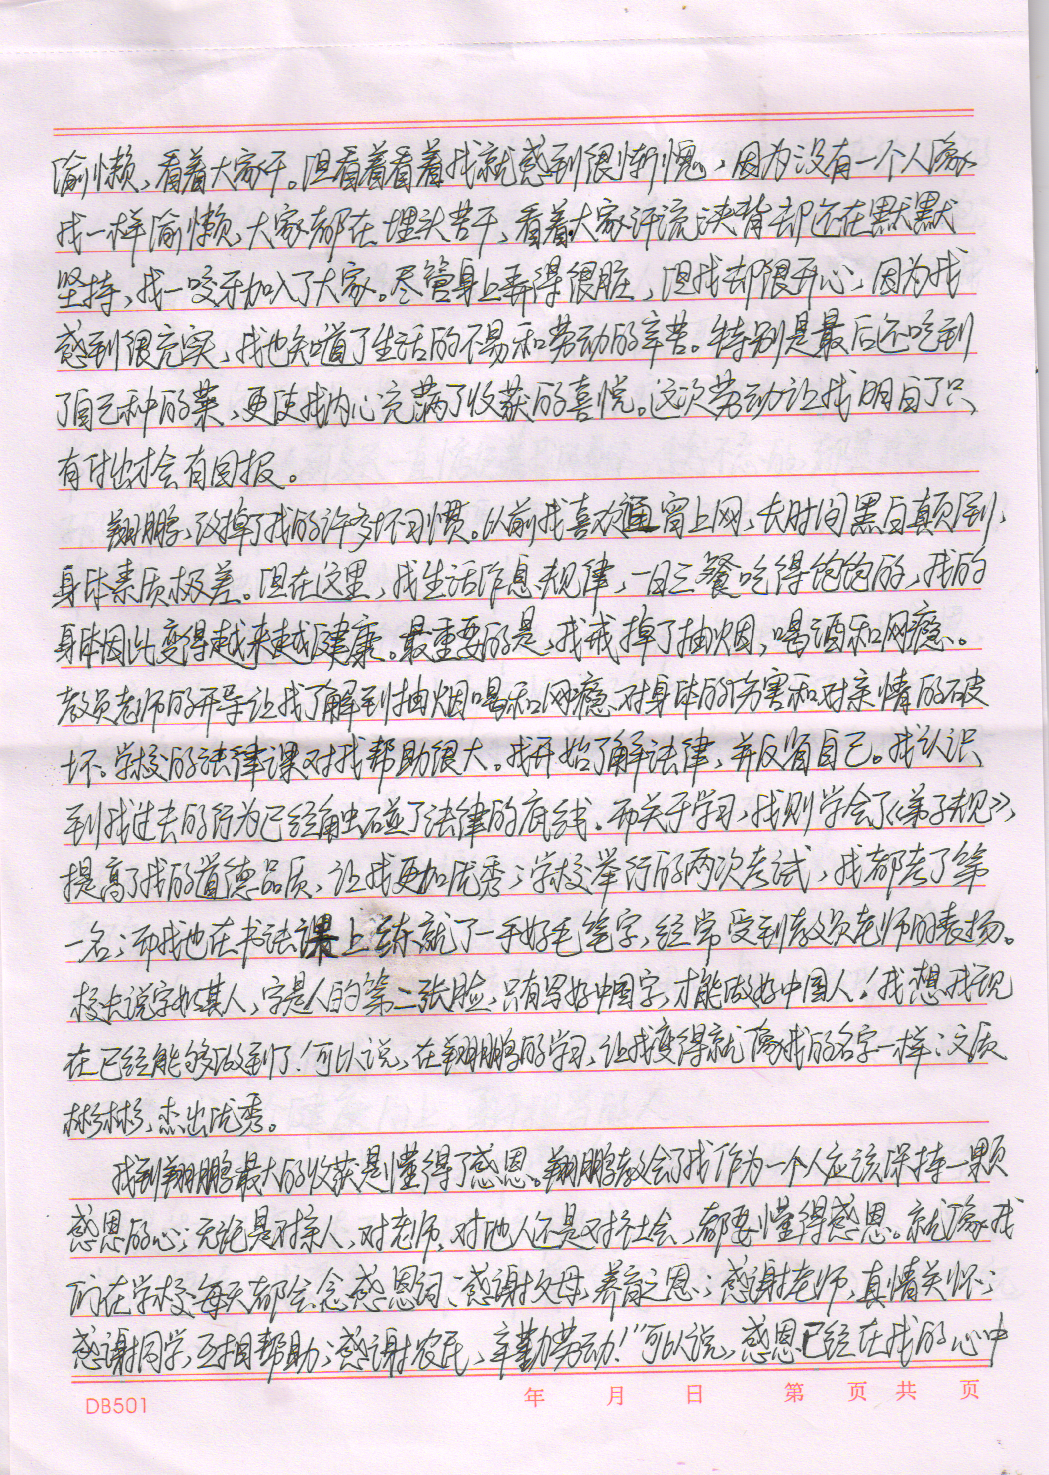 偷懒，看着大家干。但看着看着我就感到很惭愧，因为没有一个人像
我一样偷懒，大家都在埋头苦干，看着大家汗流浃背却还在默默
坚持，我一咬牙加入了大家。尽管身上弄得很脏，但我却很开心，因为我
感到很充实，我也知道了生活的不易和劳动的辛苦。特别是最后还吃到
了自己种的菜，更使我内心充满了收获的喜悦。这次劳动让我明白了只
有付出才会有回报。
翔鹏，改掉了我的许多坏习惯。以前我喜欢通宵上网，长时间黑白颠倒，
身体素质极差。但在这里，我生活作息规律，一日三餐吃得饱饱的，我的
身体因此变得越来越健康。最重要的是，我戒掉了抽烟，喝酒和网瘾。
教员老师的开导让我了解到抽烟喝和网瘾对身体的伤害和对亲情的破
坏。学校的法律课对我帮助很大。我开始了解法律，并反省自己。我认识
到我过去的行为已经触碰了法律的底线。而关于学习，我则学会了《弟子规》，
提高了我的道德品质，让我更加优秀；学校举行的两次考试，我都考了第
一名；而我也在书法课上练就了一手好毛笔字，经常受到教员老师的表扬。
校长说字如其人，字是人的第二张脸，只有写好中国字，才能做好中国人！我想我现
在已经能够做到了！可以说，在翔鹏的学习，让我变得就像我的名字一样：文质
彬彬，杰出优秀。
我到翔鹏最大的收获是懂得了感恩。翔鹏教会了我作为一个人应该保持一颗
感恩的心；无论是对亲人，对老师，对他人还是对社会，都要懂得感恩。就像我
们在学校每天都会念感恩词：感谢父母，养育之恩；感谢老师，真情关怀；
感谢同学，互相帮助；感谢农民，辛勤劳动！"可以说，感恩已经在我的心中
DB501 年 月 日 第 页 共 页